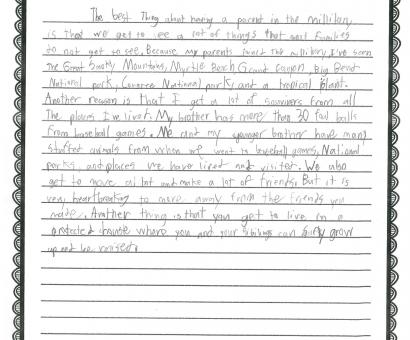 The best thing about having a parent in the millitary
is that we get to see a lot of things that most families
do not get to see. Because my parents the millitary, I've seen
The Great Smoky Mountains, Myrtle Beach, Grand Canyon, Big Bend
National park, National park, and a tropical plant.
Another reason is that I get a lot of souvenirs from all
the places I've lived. My brother has more than 30 foul balls
from baseball games. Me and my younger brother have many
stuffed animals from when we went to baseball games, National
parks, and places we have lived and visited. We also
get to move a lot and make a lot of friends. But it is
very heartbreaking to move away from the friends you
made. Another thing is that you get to live in a
protected where you and your siblings can grow
up and be raised.